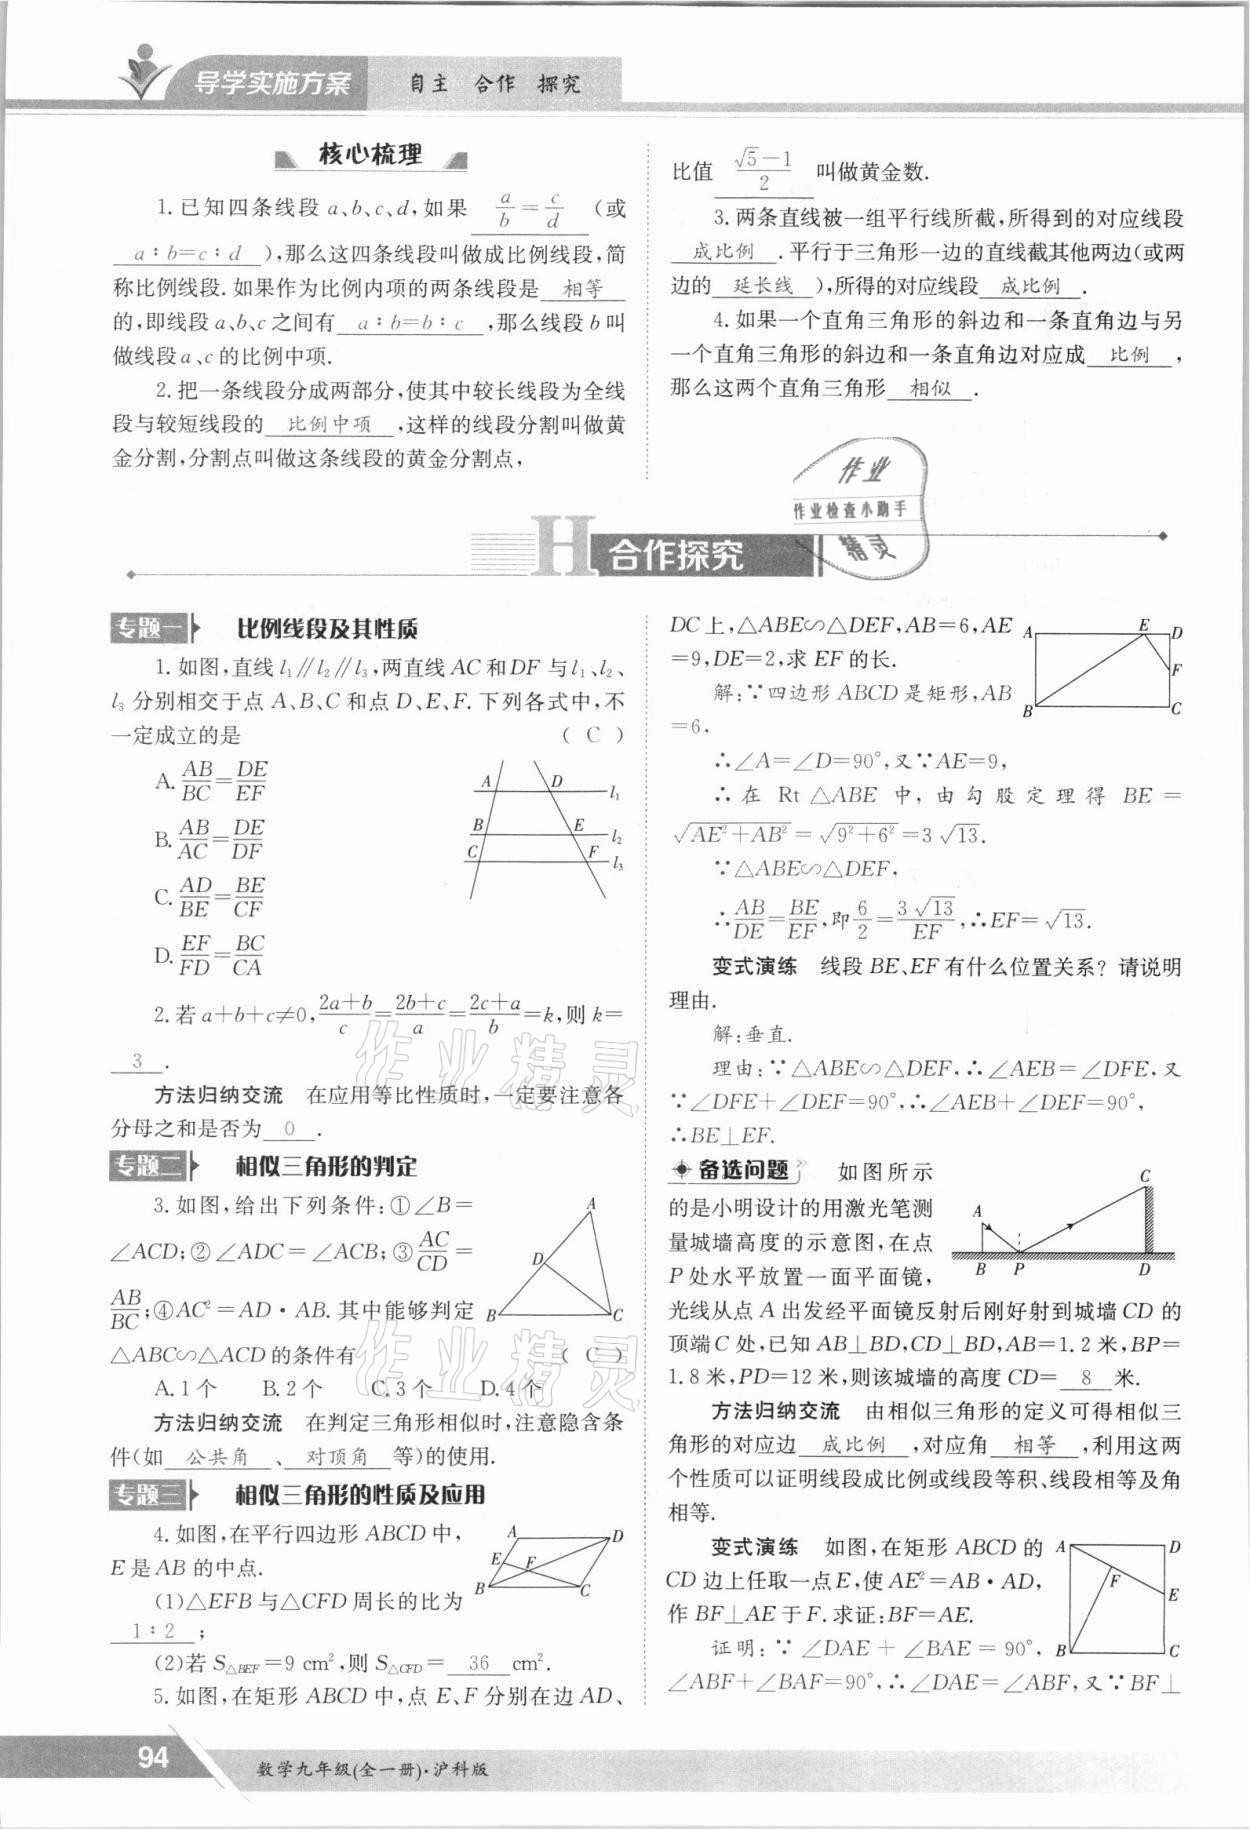 导学实施方案 自主 合作 探究
核心梳理
1.已知四条线段 a、b、c、d,如果 a/b=c/d (或
a∶b=c∶d ),那么这四条线段叫做成比例线段,简
称比例线段.如果作为比例内项的两条线段是 相等
的,即线段 a、b、c 之间有 a∶b=b∶c ,那么线段 b 叫
做线段 a、c 的比例中项.
2.把一条线段分成两部分,使其中较长线段为全线
段与较短线段的 比例中项 ,这样的线段分割叫做黄
金分割,分割点叫做这条线段的黄金分割点,
比值 (√5-1)/2 叫做黄金数.
3.两条直线被一组平行线所截,所得到的对应线段
成比例 .平行于三角形一边的直线截其他两边(或两
边的 延长线 ),所得的对应线段 成比例 .
4.如果一个直角三角形的斜边和一条直角边与另
一个直角三角形的斜边和一条直角边对应成 比例 ,
那么这两个直角三角形 相似 .
作业
作业检查小助手
精灵
H 合作探究
专题一 比例线段及其性质
1.如图,直线 l₁∥l₂∥l₃,两直线 AC 和 DF 与 l₁、l₂、
l₃ 分别相交于点 A、B、C 和点 D、E、F.下列各式中,不
一定成立的是 ( C )
A. AB/BC=DE/EF
B. AB/AC=DE/DF
C. AD/BE=BE/CF
D. EF/FD=BC/CA
A D l₁
B E l₂
C F l₃
2.若 a+b+c≠0,(2a+b)/c=(2b+c)/a=(2c+a)/b=k,则 k=
3 .
方法归纳交流 在应用等比性质时,一定要注意各
分母之和是否为 0 .
专题二 相似三角形的判定
3.如图,给出下列条件:①∠B=
∠ACD;②∠ADC=∠ACB;③AC/CD=
AB/BC;④AC²=AD·AB.其中能够判定
△ABC∽△ACD 的条件有 ( C )
A.1个 B.2个 C.3个 D.4个
A
D
B C
方法归纳交流 在判定三角形相似时,注意隐含条
件(如 公共角 、 对顶角 等)的使用.
专题三 相似三角形的性质及应用
4.如图,在平行四边形 ABCD 中,
E 是 AB 的中点.
(1)△EFB 与△CFD 周长的比为
1∶2 ;
(2)若 S△BEF=9 cm²,则 S△CFD= 36 cm².
A D
E F
B C
5.如图,在矩形 ABCD 中,点 E、F 分别在边 AD、
DC 上,△ABE∽△DEF,AB=6,AE
=9,DE=2,求 EF 的长.
A E D
F
B C
解:∵四边形 ABCD 是矩形,AB
=6,
∴∠A=∠D=90°,又∵AE=9,
∴在 Rt△ABE 中,由勾股定理得 BE=
√(AE²+AB²)=√(9²+6²)=3√13.
∵△ABE∽△DEF,
∴AB/DE=BE/EF,即6/2=3√13/EF,∴EF=√13.
变式演练 线段 BE、EF 有什么位置关系?请说明
理由.
解:垂直.
理由:∵△ABE∽△DEF,∴∠AEB=∠DFE,又
∵∠DFE+∠DEF=90°,∴∠AEB+∠DEF=90°,
∴BE⊥EF.
备选问题 如图所示
的是小明设计的用激光笔测
量城墙高度的示意图,在点
P 处水平放置一面平面镜,
光线从点 A 出发经平面镜反射后刚好射到城墙 CD 的
顶端 C 处,已知 AB⊥BD,CD⊥BD,AB=1.2米,BP=
1.8米,PD=12米,则该城墙的高度 CD= 8 米.
C
A
B P D
方法归纳交流 由相似三角形的定义可得相似三
角形的对应边 成比例 ,对应角 相等 ,利用这两
个性质可以证明线段成比例或线段等积、线段相等及角
相等.
变式演练 如图,在矩形 ABCD 的
CD 边上任取一点 E,使 AE²=AB·AD,
作 BF⊥AE 于 F.求证:BF=AE.
A D
F E
B C
证明:∵∠DAE+∠BAE=90°,
∠ABF+∠BAF=90°,∴∠DAE=∠ABF,又∵BF⊥
作业精灵
作业精灵
94 数学九年级(全一册)·沪科版